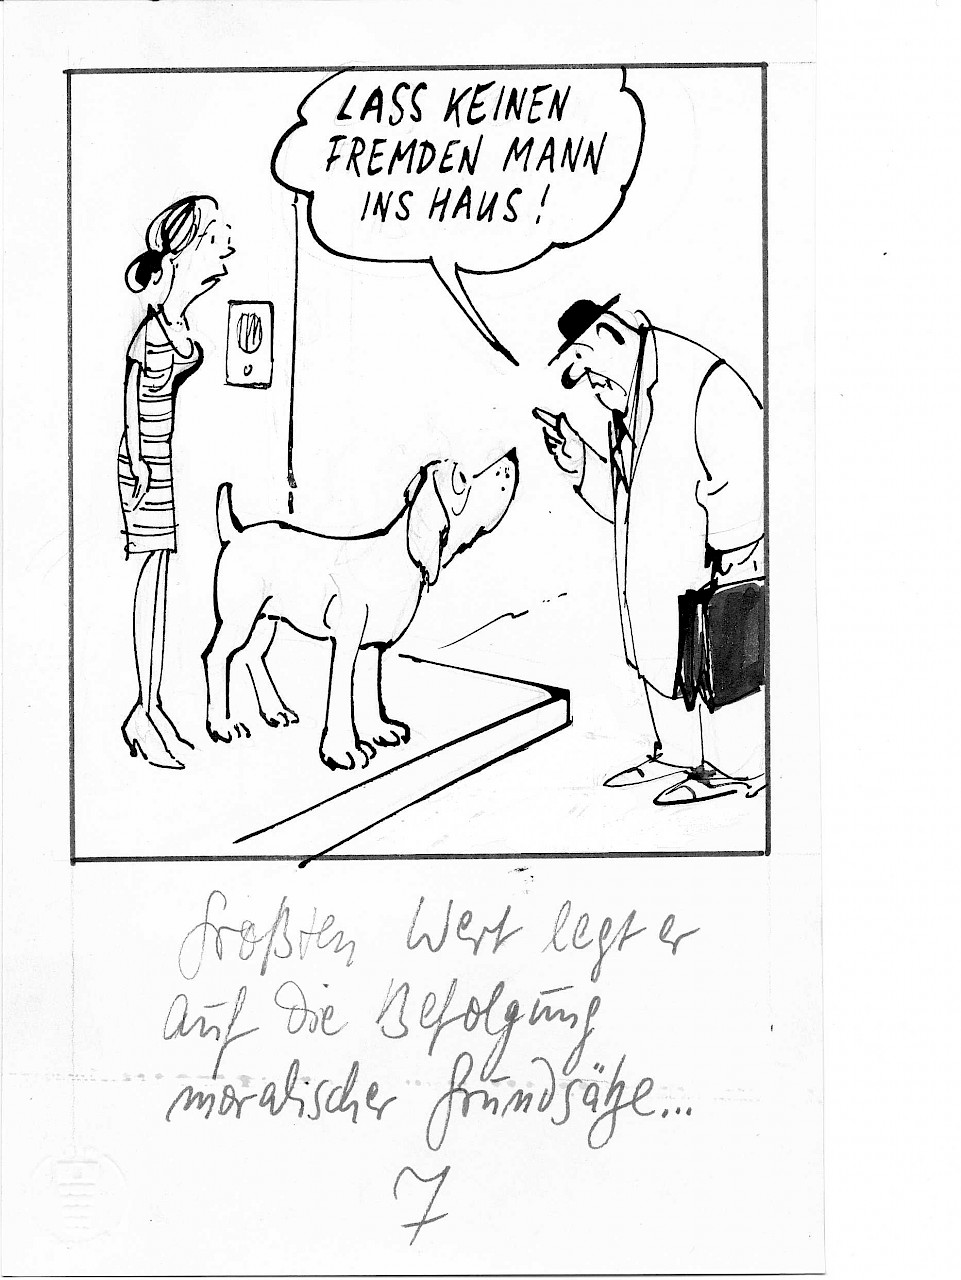 LASS KEINEN
FREMDEN MANN
INS HAUS!
Größten Wert legt er
auf die Befolgung
moralischer Grundsätze...
7